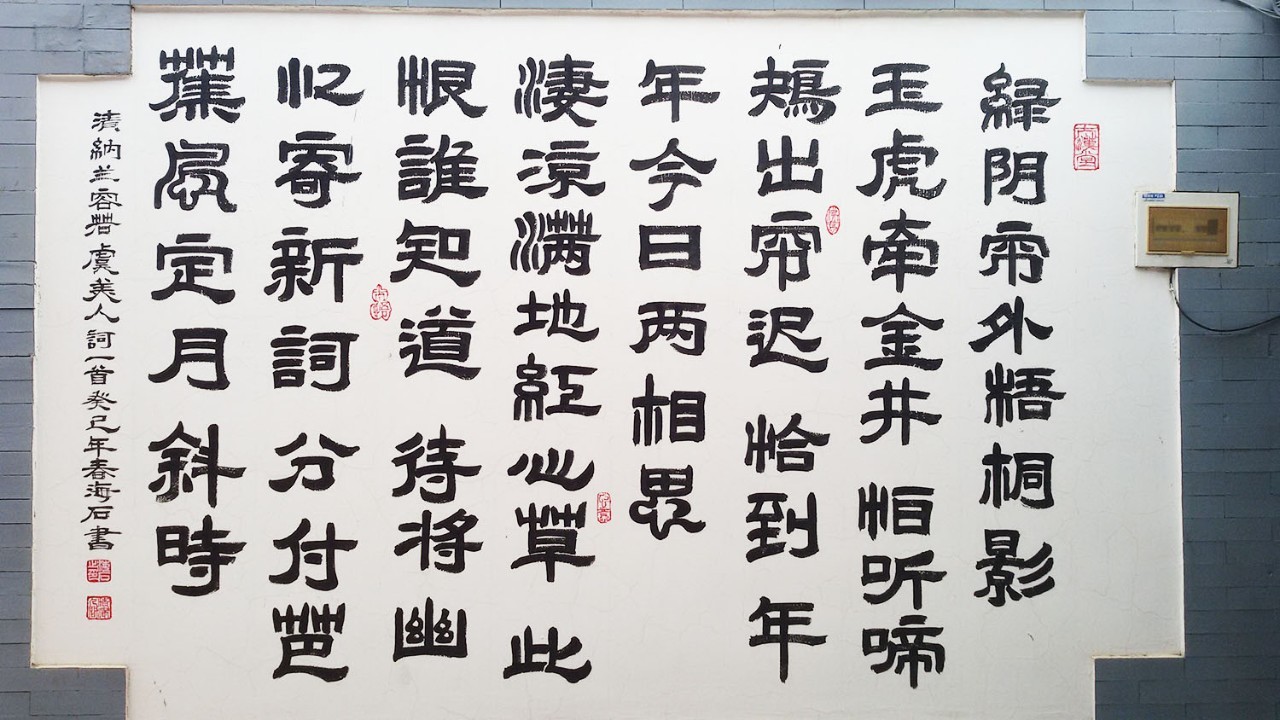 緑阴帘外梧桐影
玉虎牵金井 怕听啼
鴂出帘迟 恰到年
年今日两相思
淒涼满地紅心草 此
恨誰知道 待将幽
忆寄新詞 分付芭
蕉風定月斜時
清納兰容若虞美人詞一首癸巳年春海石書